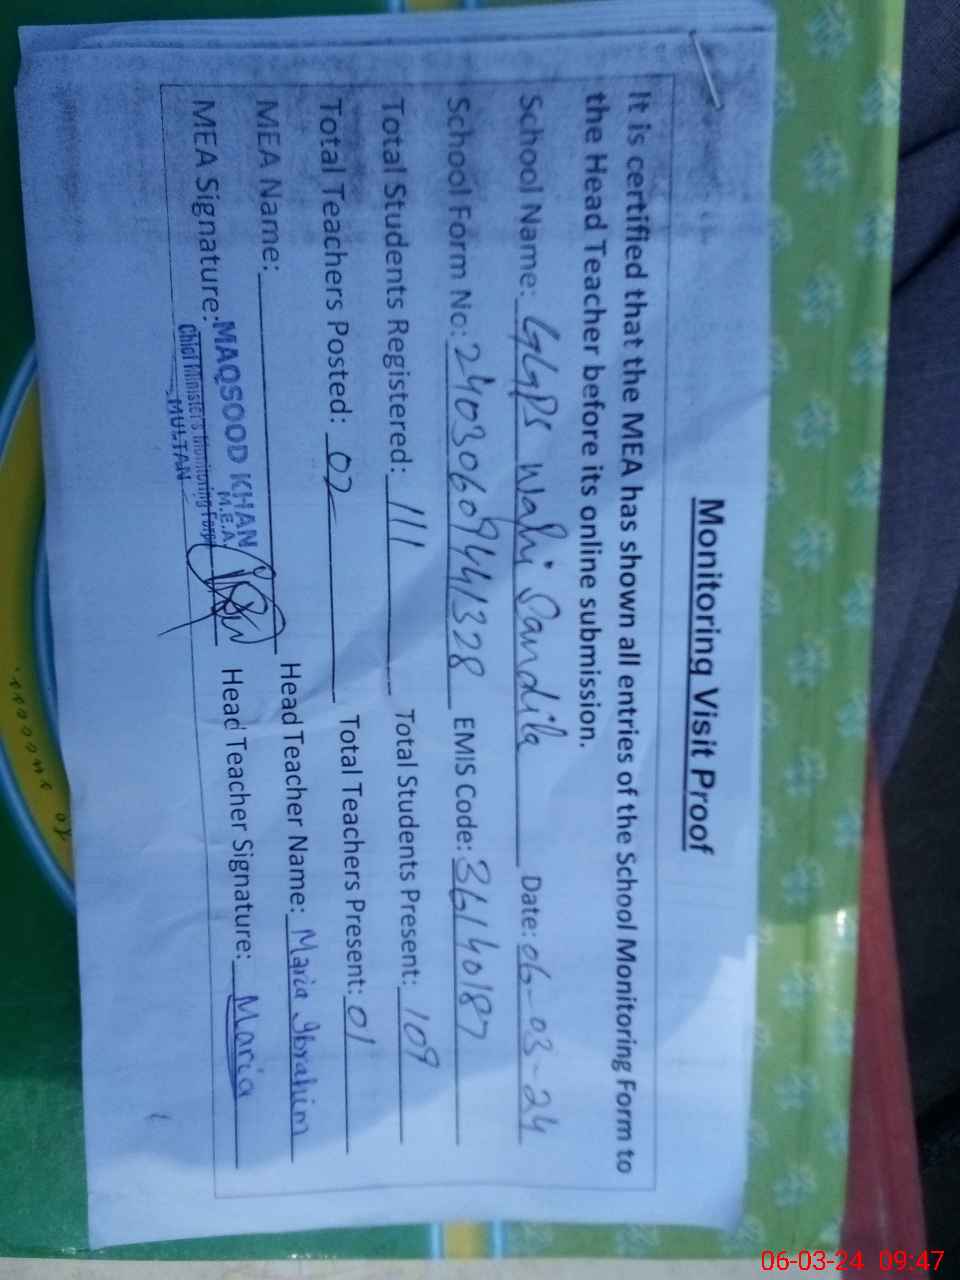 Monitoring Visit Proof
It is certified that the MEA has shown all entries of the School Monitoring Form to
the Head Teacher before its online submission.
School Name: GGPS Wahi Sandila Date: 06-03-24
School Form No: 24030609441328 EMIS Code: 36140187
Total Students Registered: 111 Total Students Present: 109
Total Teachers Posted: 02 Total Teachers Present: 01
MEA Name: Head Teacher Name: Maria Ibrahim
MEA Signature: Head Teacher Signature: Maria
MAQSOOD KHAN
M.E.A
Chief Minister's Monitoring Force
MULTAN
06-03-24 09:47